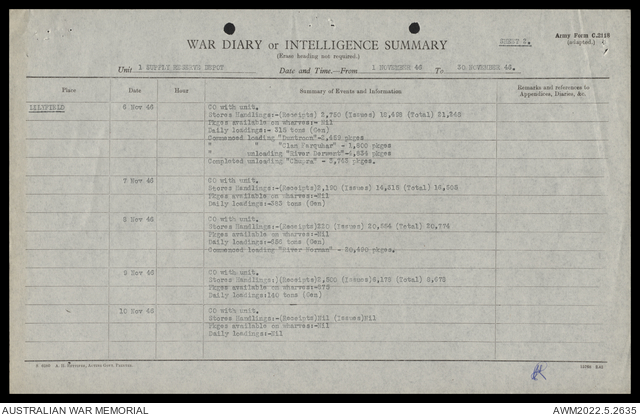 SHEET 2.
Army Form C.2118
(adapted.)
WAR DIARY or INTELLIGENCE SUMMARY
(Erase heading not required.)
Unit 1 SUPPLY RESERVE DEPOT Date and Time.—From 1 NOVEMBER 46 To 30 NOVEMBER 46.
Place Date Hour Summary of Events and Information Remarks and references to Appendices, Diaries, &c.
LILYFIELD 6 Nov 46 CO with unit.
Stores Handlings:-(Receipts) (Issues) (Total)
Pkges available on wharves:- Nil
Daily loadings:- 315 tons (Gen)
Commenced loading "Duntroon" pkges
" " "Clan Farquhar" - 1,600 pkges
" unloading "River Derwent"
Completed unloading pkges.
7 Nov 46 CO with unit.
Stores Handlings:-(Receipts) (Issues) (Total)
Pkges available on wharves:-Nil
Daily loadings:-383 tons (Gen)
8 Nov 46 CO with unit.
Stores Handlings:-(Receipts) (Issues) (Total) 20,774
Pkges available on wharves:-Nil
Daily loadings: tons (Gen)
Commenced loading "River Norman" pkges.
9 Nov 46 CO with unit.
Stores Handlings:)(Receipts) (Issues) (Total)
Pkges available on wharves:-
Daily loadings:140 tons (Gen)
10 Nov 46 CO with unit.
Stores Handlings:-(Receipts)Nil (Issues)Nil
Pkges available on wharves:-Nil
Daily loadings:-Nil
AUSTRALIAN WAR MEMORIAL AWM2022.5.2635